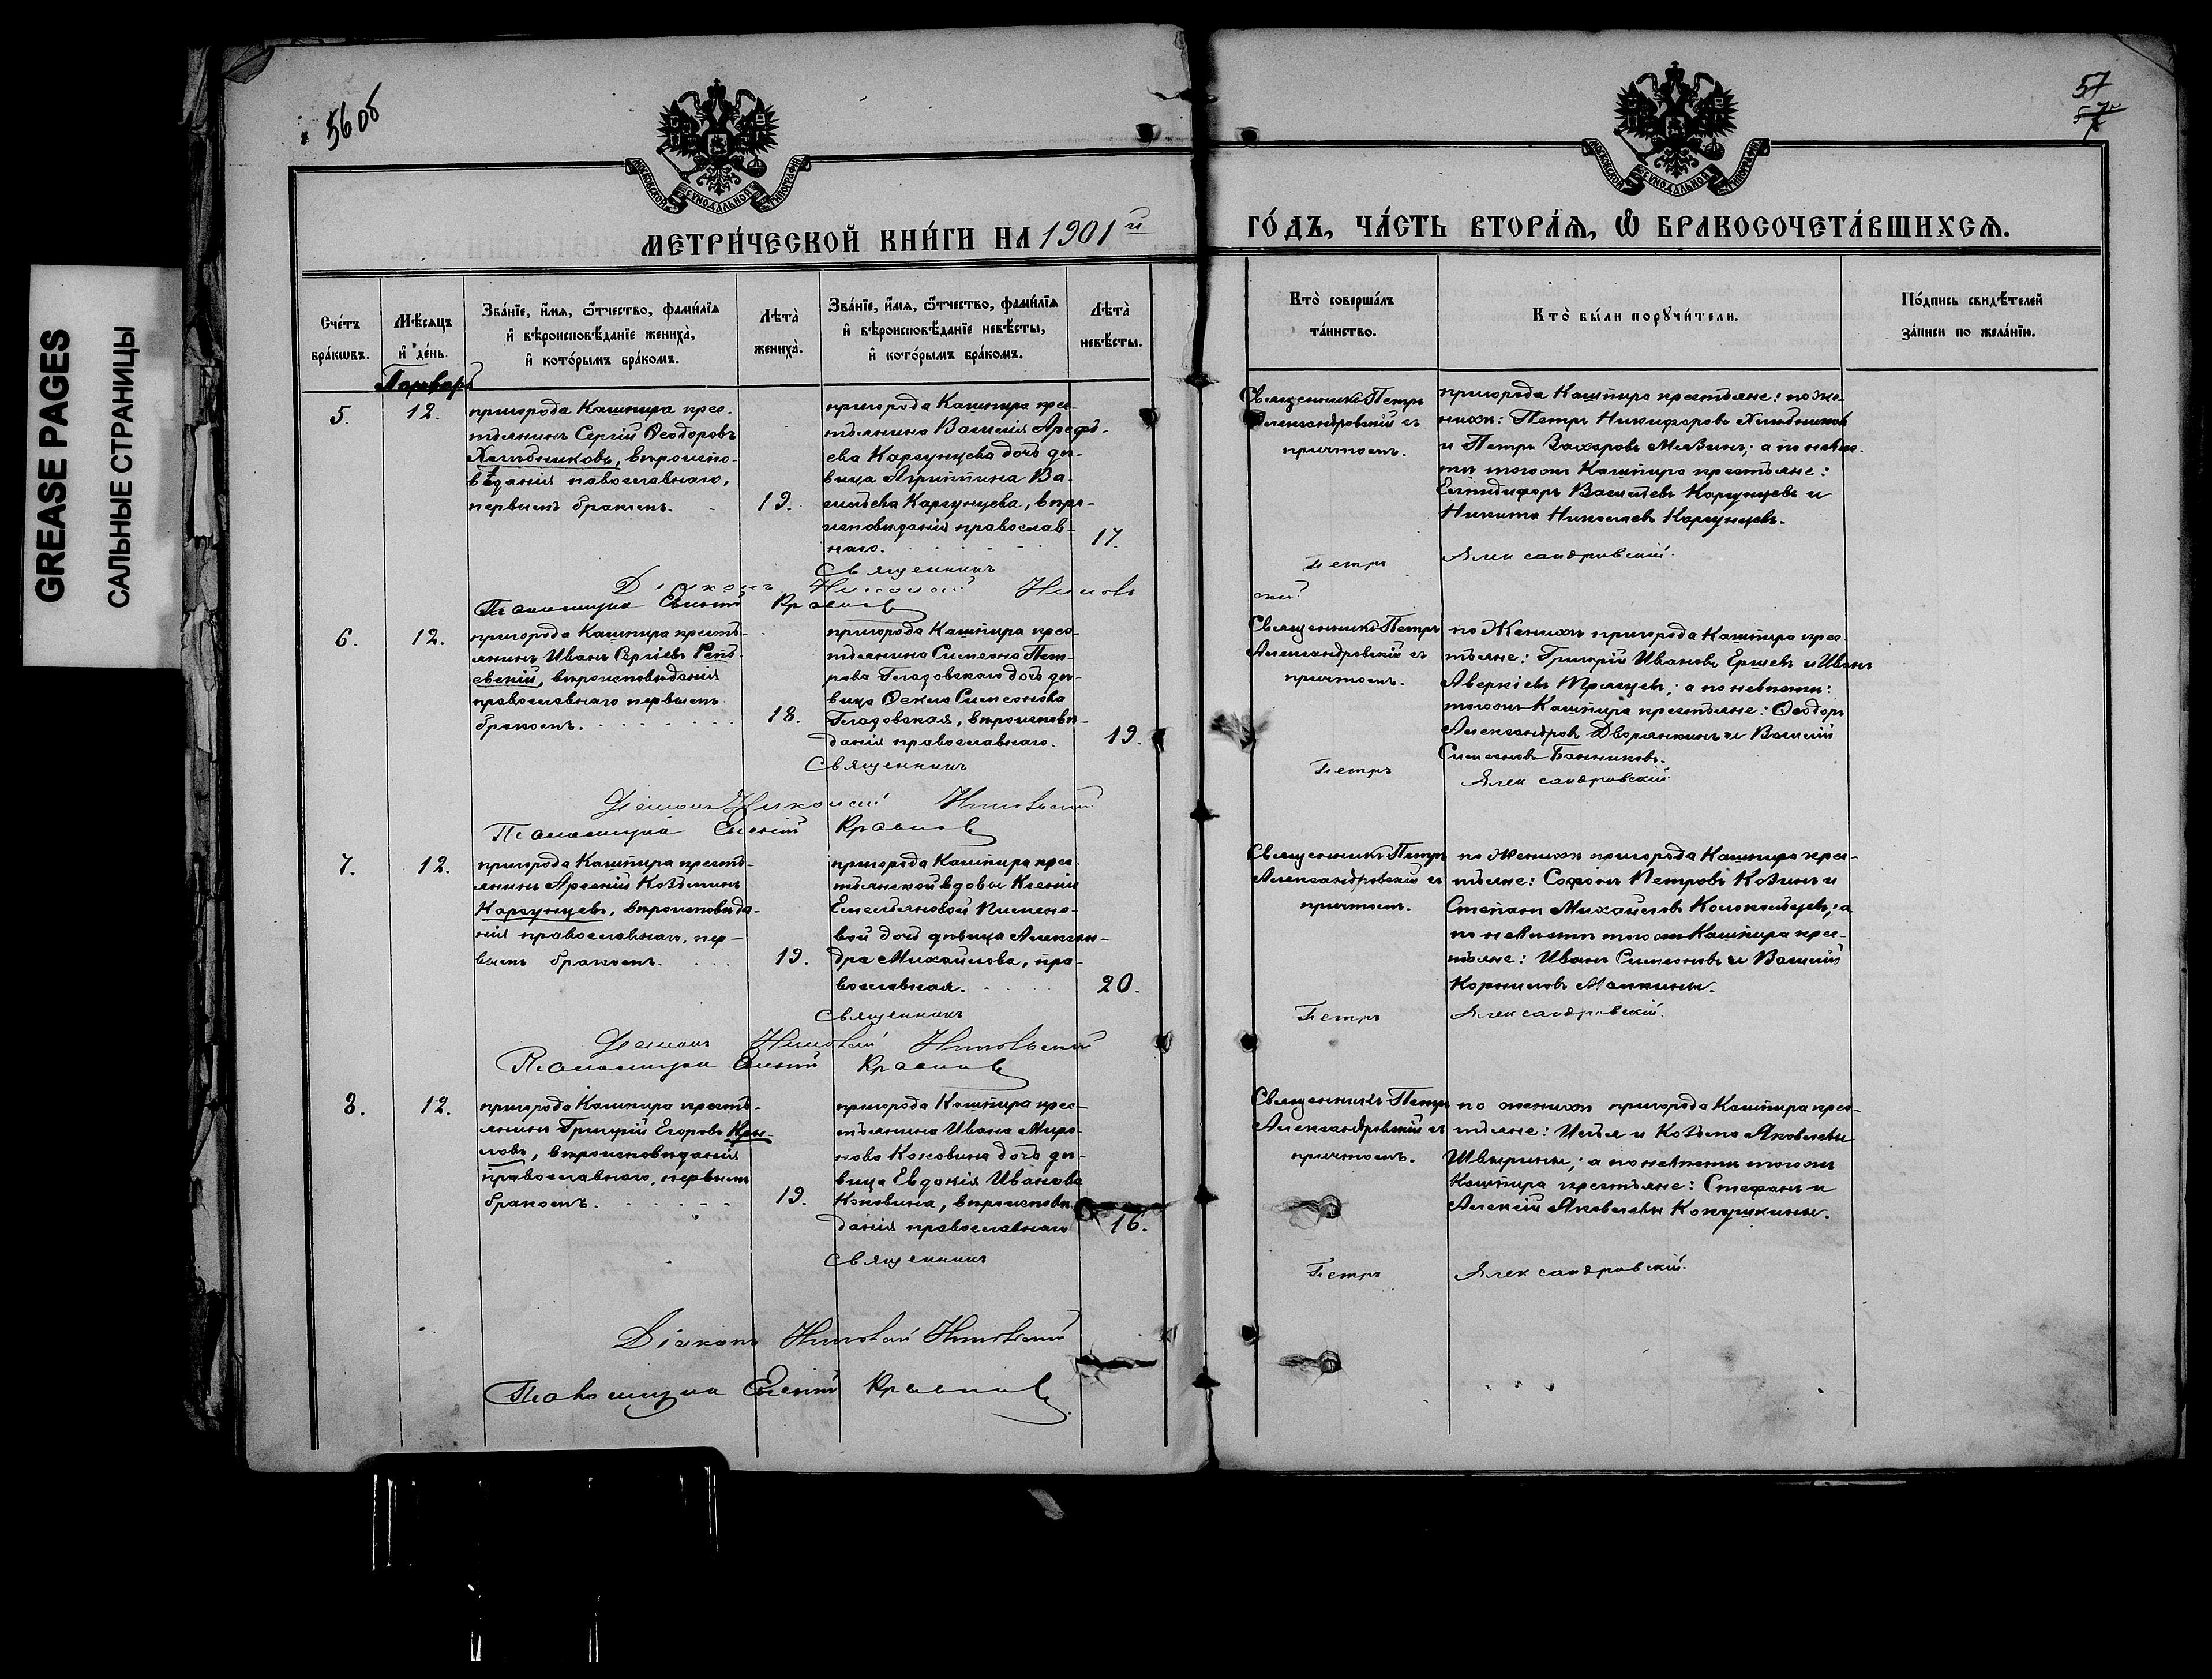 GREASE PAGES
САЛЬНЫЕ СТРАНИЦЫ
56 об
57
МОСКОВСКОЙ СУНОДАЛЬНОЙ ТИПОГРАФІИ
МОСКОВСКОЙ СУНОДАЛЬНОЙ ТИПОГРАФІИ
МЕТРИ́ЧЕСКОЙ КНИ́ГИ НА 1901 й
ГО́ДЪ, ЧА́СТЬ ВТОРА́Ѧ, Ѽ БРАКОСОЧЕТА́ВШИХСѦ.
Сче́тъ
бра́кѡвъ.
Мѣ́сѧцъ
и҆ де́нь.
Зва́нїе, и҆́мѧ, ѻ҆́тчество, фами́лїѧ
и҆ вѣроисповѣ́данїе жениха̀,
и҆ кото́рымъ бра́комъ.
Лѣта̀
жениха̀.
Зва́нїе, и҆́мѧ, ѻ҆́тчество, фами́лїѧ
и҆ вѣроисповѣ́данїе невѣ́сты,
и҆ кото́рымъ бра́комъ.
Лѣта̀
невѣ́сты.
Кто̀ соверша́лъ
та́инство.
Кто̀ бы́ли порꙋчи́тели.
По́дпись свидѣ́телей
за́писи по жела́нїю.
Январь
5.
12.
пригорода Кашпира крес-
тьянинъ Сергій Ѳеодоровъ
Хлѣбниковъ, вѣроиспо-
вѣданія павославнаго,
первымъ бракомъ.
19.
пригорода Кашпира крес-
тьянина Василія Арефь-
ева Каргунцева дочь дѣ-
вица Агриппина Ва-
сильева Каргунцева, вѣро-
исповѣданія православ-
наго.
17.
Священникъ Петръ
Александровскій съ
причтомъ.
пригорода Кашпира крестьяне: по же-
нихѣ: Петръ Никифоровъ Хлѣбниковъ
и Петръ Захаровъ Мязинъ; а по невѣс-
тѣ того же Кашпира крестьяне:
Елпидифоръ Васильевъ Каргунцевъ и
Никита Николаевъ Каргунцевъ.
Священникъ Петръ Александровскій.
Діаконъ Николай
Псаломщикъ Евгеній Краснов
6.
12.
пригорода Кашпира кресть-
янинъ Иванъ Сергіевъ Репь-
евскій, вѣроисповѣданія
православнаго первымъ
бракомъ.
18.
пригорода Кашпира крес-
тьянина Симеона Пет-
рова Гладовскаго дочь дѣ-
вица Ѳекла Симеонова
Гладовская, вѣроисповѣ-
данія православнаго.
19.
Священникъ Петръ
Александровскій съ
причтомъ.
по Женихѣ пригорода Кашпира крес-
тьяне: Григорій Ивановъ Ершевъ и Иванъ
Аверкіевъ; а по невѣстѣ:
того же Кашпира крестьяне: Ѳеодоръ
Александровъ Дворянкинъ и Василій
Симеоновъ Банниковъ.
Священникъ Петръ Александровскій
Діаконъ Николай Никольскій
Псаломщикъ Евгеній Краснов
7.
12.
пригорода Кашпира кресть-
янинъ Арсеній Козьминъ
Каргунцевъ, вѣроисповѣда-
нія православнаго, пер-
вымъ бракомъ.
19.
пригорода Кашпира крес-
тьянской вдовы Ксеніи
Емельяновой Пимено-
вой дочь дѣвица Алексан-
дра Михайлова, пра-
вославная.
20.
Священникъ Петръ
Александровскій съ
причтомъ.
по Женихѣ пригорода Кашпира крес-
тьяне: Софонъ Петровъ Козинъ и
Степанъ Михайловъ Колокольцевъ; а
по невѣстѣ того же Кашпира крес-
тьяне: Иванъ Симеоновъ и Василій
Корниловъ Малкины.
Священникъ Петръ Александровскій.
Діаконъ Николай Никольскій
Псаломщикъ Евгеній Краснов
8.
12.
пригорода Кашпира кресть-
янинъ Григорій Егоровъ Кры-
ловъ, вѣроисповѣданія
православнаго, первымъ
бракомъ.
19.
пригорода Кашпира крес-
тьянина Ивана Миро-
нова Коковина дочь дѣ-
вица Евдокія Иванова
Коковина, вѣроисповѣ-
данія православнаго
16.
Священникъ Петръ
Александровскій съ
причтомъ.
по женихѣ пригорода Кашпира крес-
тьяне: Илья и Козьма Яковлевы
Швырины; а по невѣстѣ того же
Кашпира крестьяне: Стефанъ и
Алексій Яковлевы Кокушкины.
Священникъ Петръ Александровскій.
Діаконъ Николай Никольскій
Псаломщикъ Евгеній Краснов